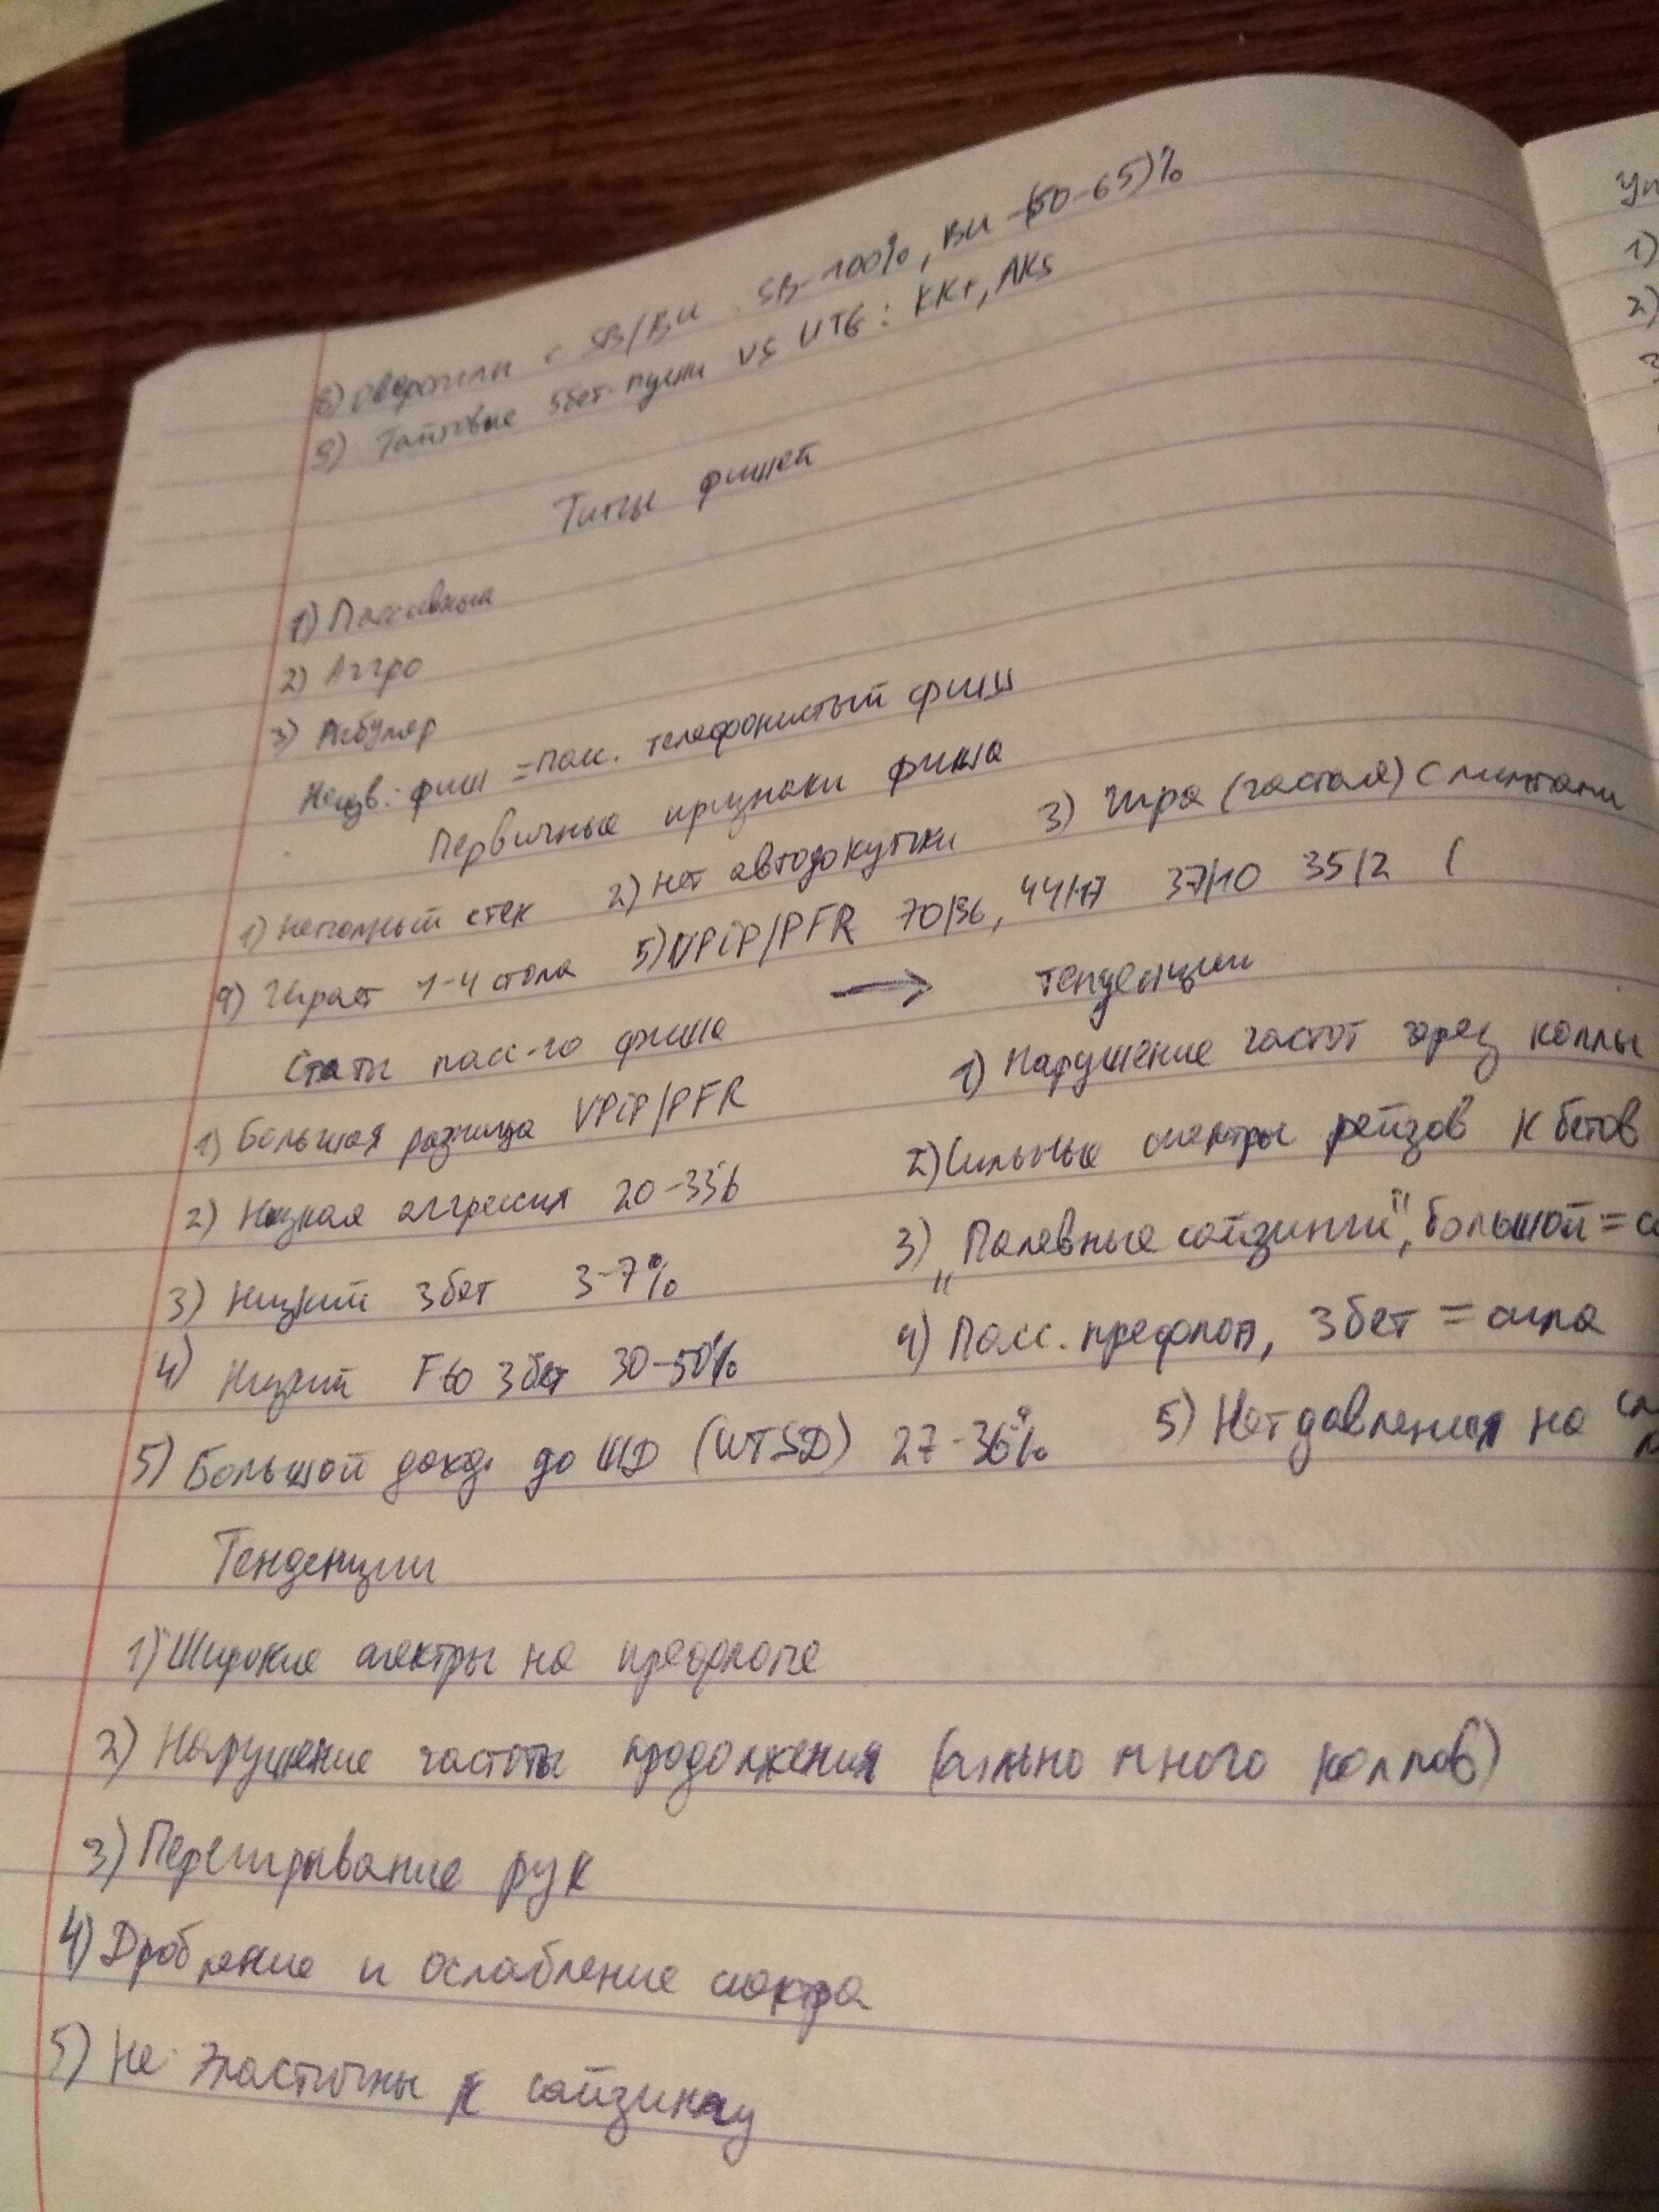 8) Оверколлы с SB/BU SB-100%, BU-(50-65)%
9) Тайтовые 5бет-пуши vs UTG: KK+, AKs
Типы фишей
1) Пассивный
2) Аггро
3) Аебуляр
Неизв: фиш = пасс. телефонистый фиш
Первичные признаки фиша
1) Неполный стек 2) Нет автодокупки 3) Игра (частая) с лимпами
4) Играет 1-4 стола 5) VPiP/PFR 70/36, 44/17 37/10 35/2 (
Статы пасс-го фиша → тенденции
1) Большая разница VPiP/PFR
1) Нарушение частот через коллы
2) Низкая аггрессия 20-33%
2) Сильные спектры рейзов к бетов
3) Низкий 3бет 3-7%
3) „Палевные сайзинги", большой =
4) Низкий Fto 3бет 30-50%
4) Пасс. префлоп, 3бет = сила
5) Большой доход. до ШД (WTSD) 27-36%
5) Нет давления на
Тенденции
1) Широкие спектры на префлопе
2) Нарушение частоты продолжения (сильно много коллов)
3) Переигрывание рук
4) Дробление и ослабление спектра
5) Не эластичны к сайзингу
Уп
1)
2)
3